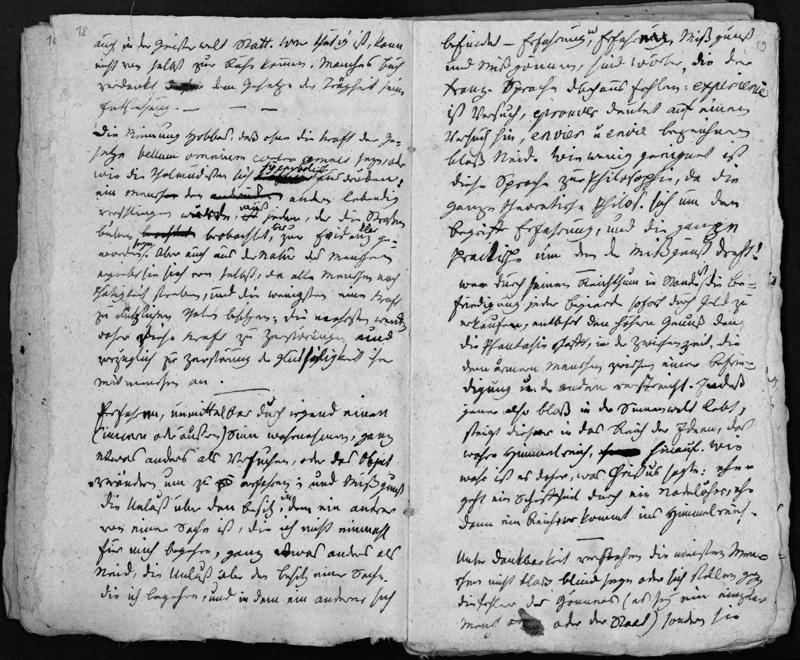 18
auch in der Geisterwelt Statt. Wer thätig ist, kann
nicht von selbst zur Ruhe kommen. Manches Buch
verdankt dem Gesetze der Trägheit seine
Entstehung. — — —
Die Meinung Hobbes, daß ohne die Kraft der Ge-
setze bellum omnium contra omnes sey, oder
wie die Thalmudisten sich hyperbolisch ausdrücken,
ein Mensch den andern lebendig
verschlingen würde, muß jedem, der die
beobachtet, zur Evidenz ge-
worden seyn. Aber auch aus der Natur des Menschen
ergiebt sie sich von selbst, da alle Menschen nach
Thätigkeit streben, und die wenigsten eine Kraft
zu nützlichen Thaten besitzen; die mehrsten wenden
daher diese Kraft zu Zerstörungen und
vorzüglich zu Zerstörung der Glückseligkeit ihrer
Mitmenschen an.
Erfahren, unmittelbar durch irgend einen
(innern oder äußern) Sinn wahrnehmen, ganz
etwas anders als Versuchen, oder das Object
verändern um zu erfahren; und Mißgunst
die Unlust über den Besitz, in dem ein andrer
von einer Sache ist, die ich nicht einmahl
für mich begehre, ganz etwas anders als
Neid, die Unlust über den Besitz einer Sache
die ich begehre, und in dem ein anderer sich
19
befindet — Erfahrung u Erfahren, Mißgunst
und Mißgönnen, sind Wörter, die der
Franz. Sprache durchaus fehlen: experience
ist Versuch, eprouver deutet auf einen
Versuch hin, envier u envie bezeichnen
bloß Neid. Wie wenig geeignet ist
diese Sprache zur Philosophie, da die
ganze theoretische Philos. sich um den
Begriff Erfahrung, und die ganze
Praktische um den der Mißgunst dreht!
Wer durch seinen Reichthum in Stande ist, die Be-
friedigung jeder Begierde sofort durch Geld zu
erkaufen, entbehrt den höhern Genuß, den
die Phantasie in der Zwischenzeit, die
dem ärmern Menschen zwischen einer Befrie-
digung u. der andern verstreicht. Indeß
jener also bloß in der Sinnenwelt lebt,
steigt dieser in das Reich der Ideen, das
wahre Himmelreich, hinauf. Wie
wahr ist es daher, was Christus sagte: eher
geht ein Schiffseil durch ein Nadelöhr, ehe
denn ein Reicher kommt ins Himmelreich.
Unter Dankbarkeit verstehen die meisten Men-
schen nicht bloß blind seyn oder sich stellen gegen
die Fehler des Gönners (es sey ein einzelner
Mensch oder der Staat) sondern sie